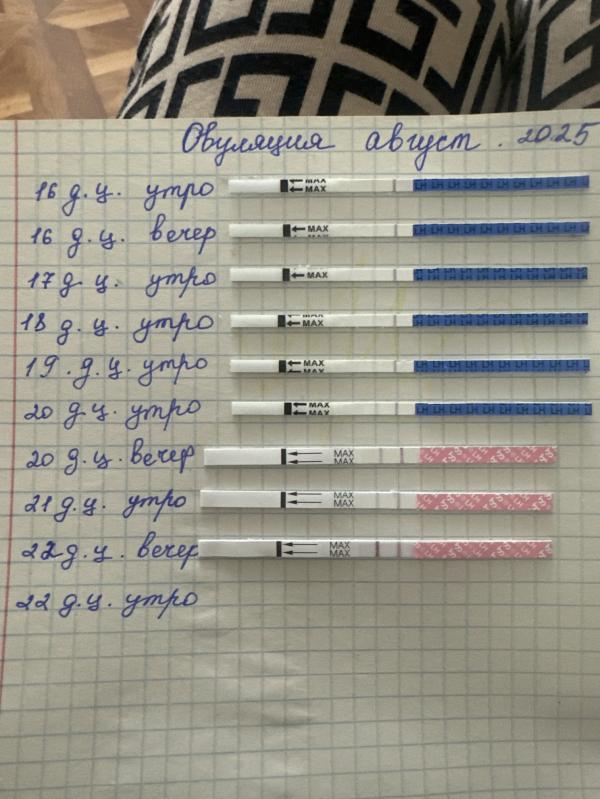 Овуляция август. 2025
16 д.ц. утро MAX MAX LH LH LH LH LH LH LH LH LH LH
16 д.ц. вечер MAX LH LH LH LH LH LH LH LH LH LH
17 д.ц. утро MAX
18 д.ц. утро MAX MAX
19. д.ц. утро MAX MAX LH LH LH LH LH LH LH LH LH LH
20 д.ц. утро MAX MAX LH LH LH LH LH LH LH LH LH LH
20 д.ц. вечер MAX MAX
21 д.ц. утро MAX MAX
22 д.ц. вечер MAX MAX
22 д.ц. утро